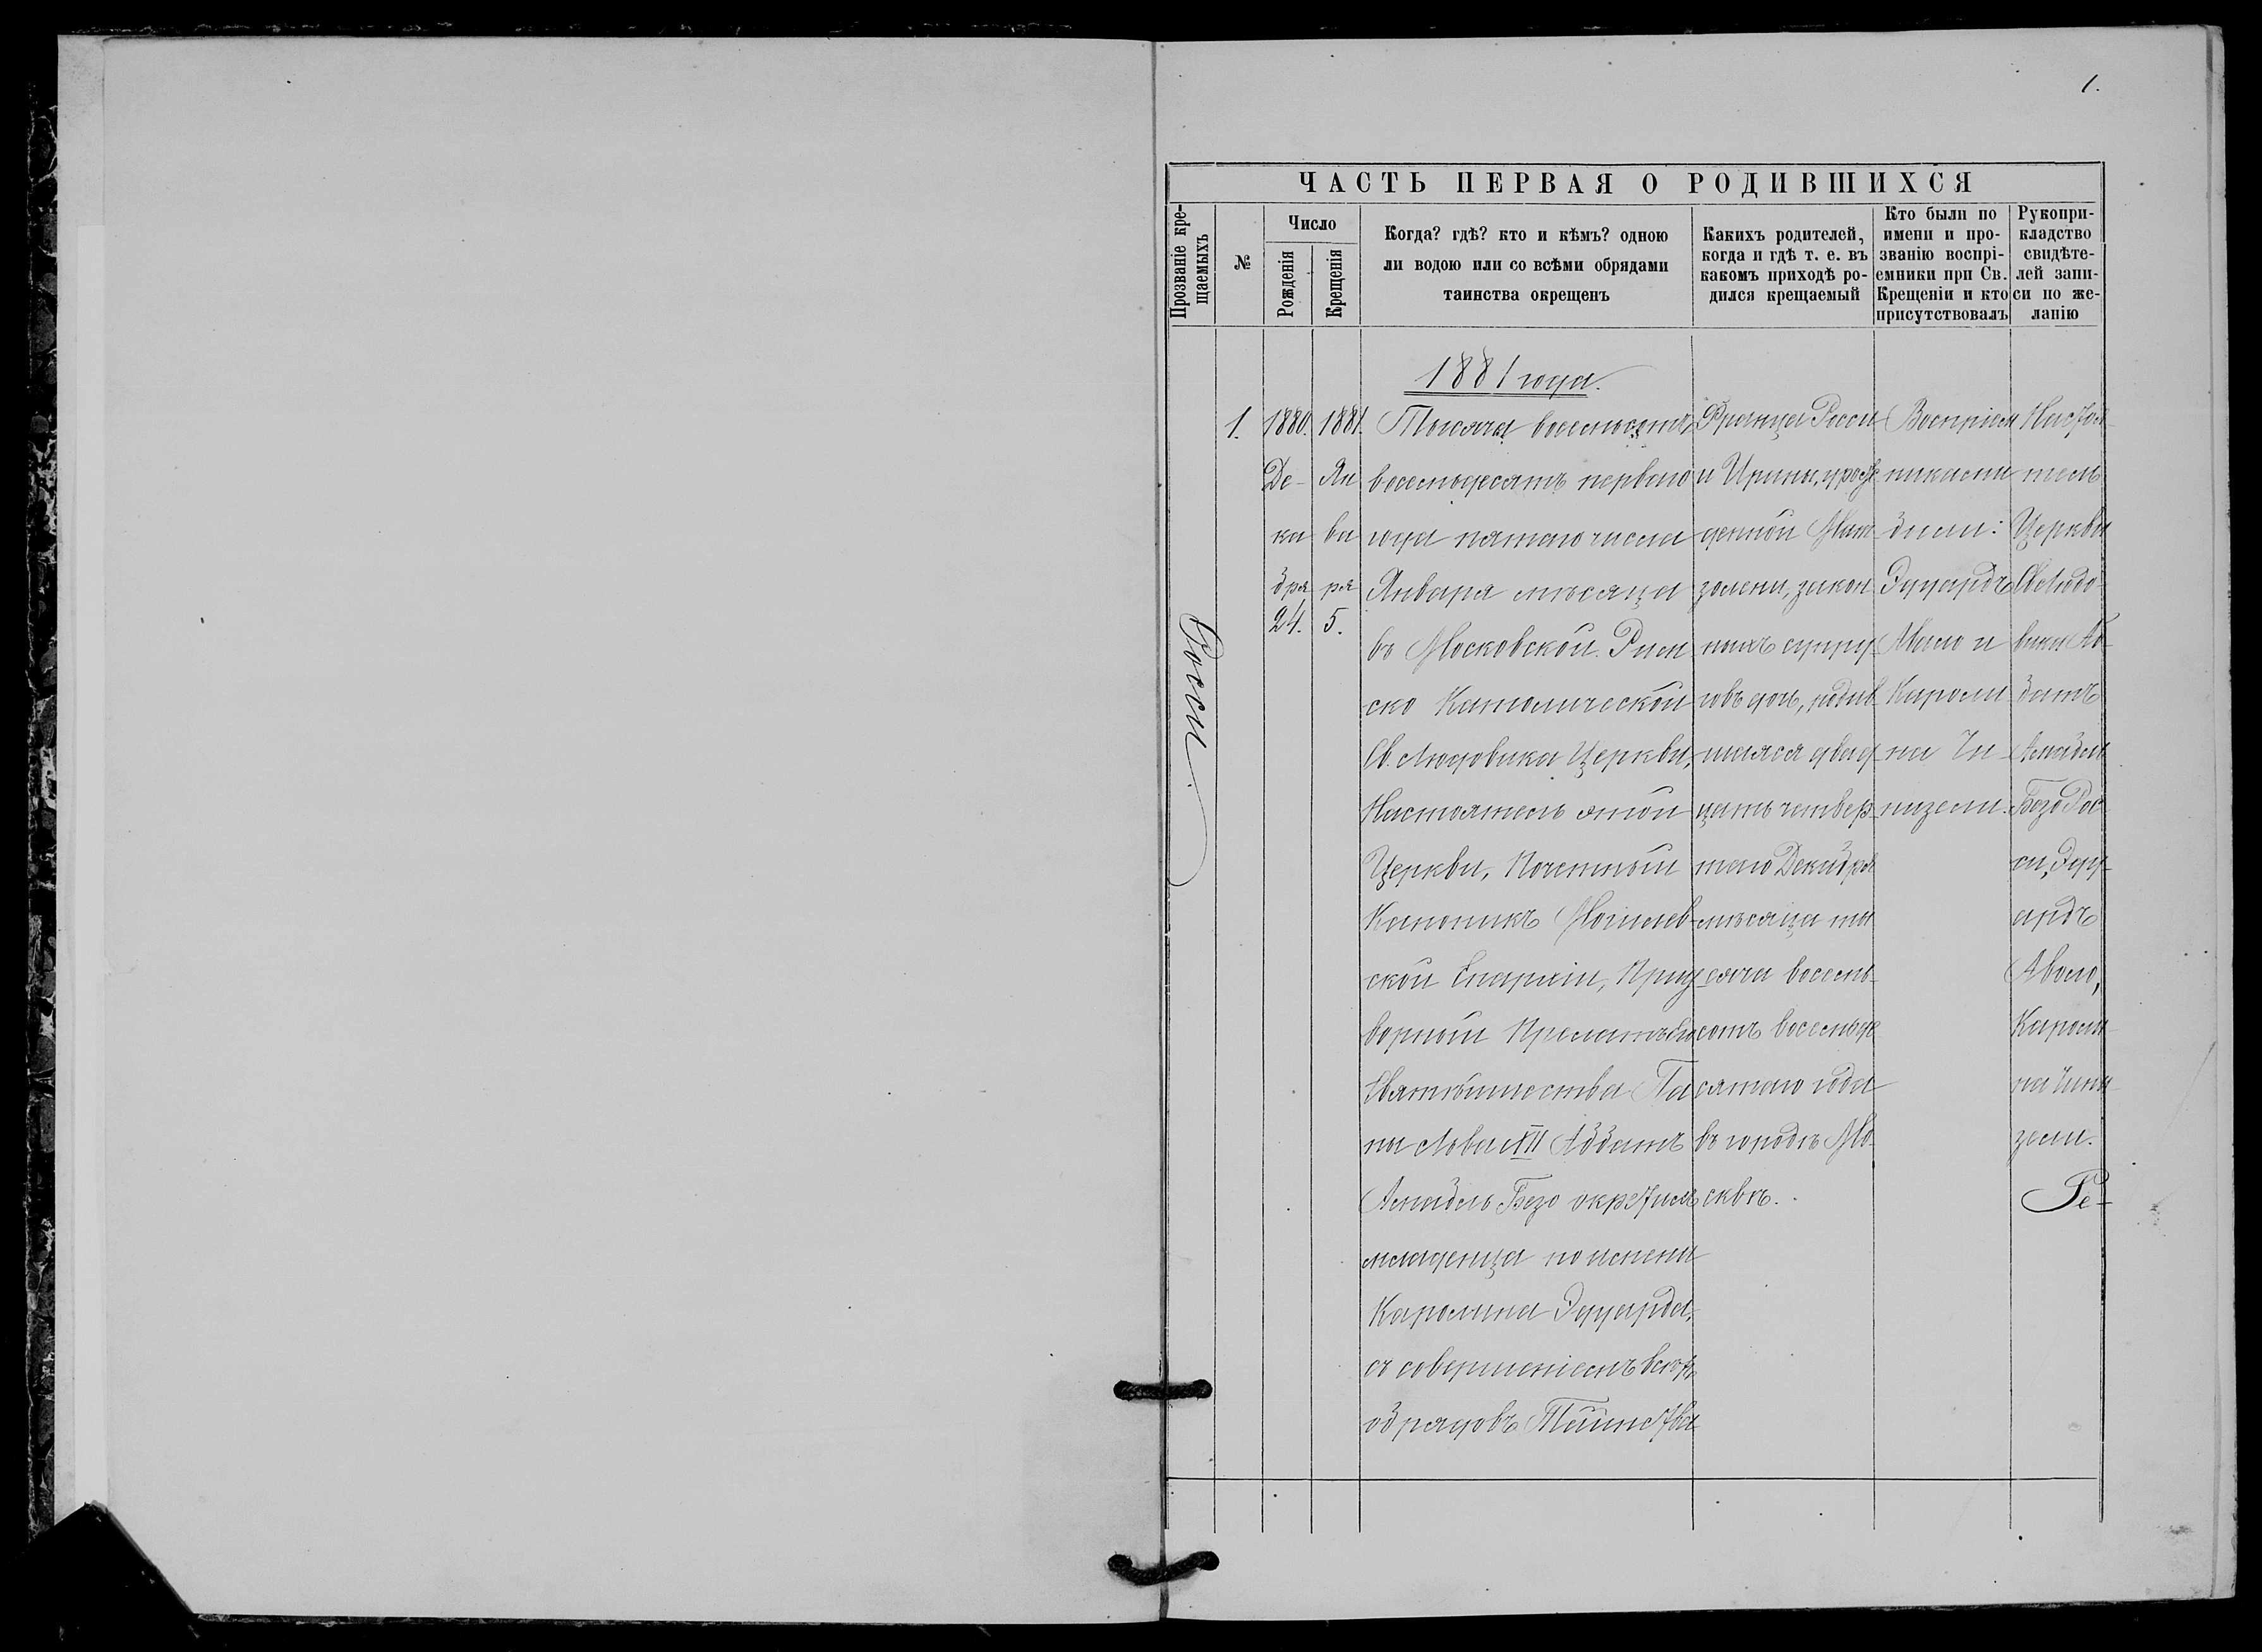 1.
ЧАСТЬ ПЕРВАЯ О РОДИВШИХСЯ
Прозваніе кре-
щаемыхъ
№
Число
Рожденія
Крещенія
Когда? гдѣ? кто и кѣмъ? одною
ли водою или со всѣми обрядами
таинства окрещенъ
Какихъ родителей,
когда и гдѣ т. е. въ
какомъ приходѣ ро-
дился крещаемый
Кто были по
имени и про-
званію воспрі-
емники при Св.
Крещеніи и кто
присутствовалъ
Рукопри-
кладство
свидѣте-
лей запи-
си по же-
ланію
Росси.
1.
1880.
Де-
ка
бря
24.
1881.
Ян
ва
ря
5.
1881 года.
Тысяча восемьсотъ
восемьдесятъ первого
года пятаго числа
Января мѣсяца
въ Московской Рим
ско Католической
Св. Людовика Церкви,
Настоятель этой
Церкви, Почетный
Каноникъ Могилев-
ской Епархіи, Прид
ворный Прелатъ Его
Святѣйшества Па
пы Льва XIII Аббатъ
Амабль Безо окрестилъ
младенца по имени
Каролина Эдуарда,
съ совершеніемъ всѣхъ
обрядовъ Таинства
Франца Росси
и Ирины, урож
денной
закон
ныхъ супру
говъ дочь, родив
шаяся двад
цать четвер
таго Декабря
мѣсяца ты
сяча восемь-
сотъ восемьде
сятаго года
въ городѣ Мо
сквѣ.
Воспріем
никами
были:
Эдуардъ
Авило и
Кароли
на Чи-
низели.
Настоя-
тель
Церкви
Св. Людо-
вика Аб-
батъ
Амабль
Безо, Рос
си, Эду-
ардъ
Авило,
Кароли-
на Чини
зели.
Ре-